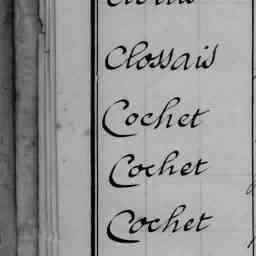 Clossais
Cochet
Cochet
Cochet